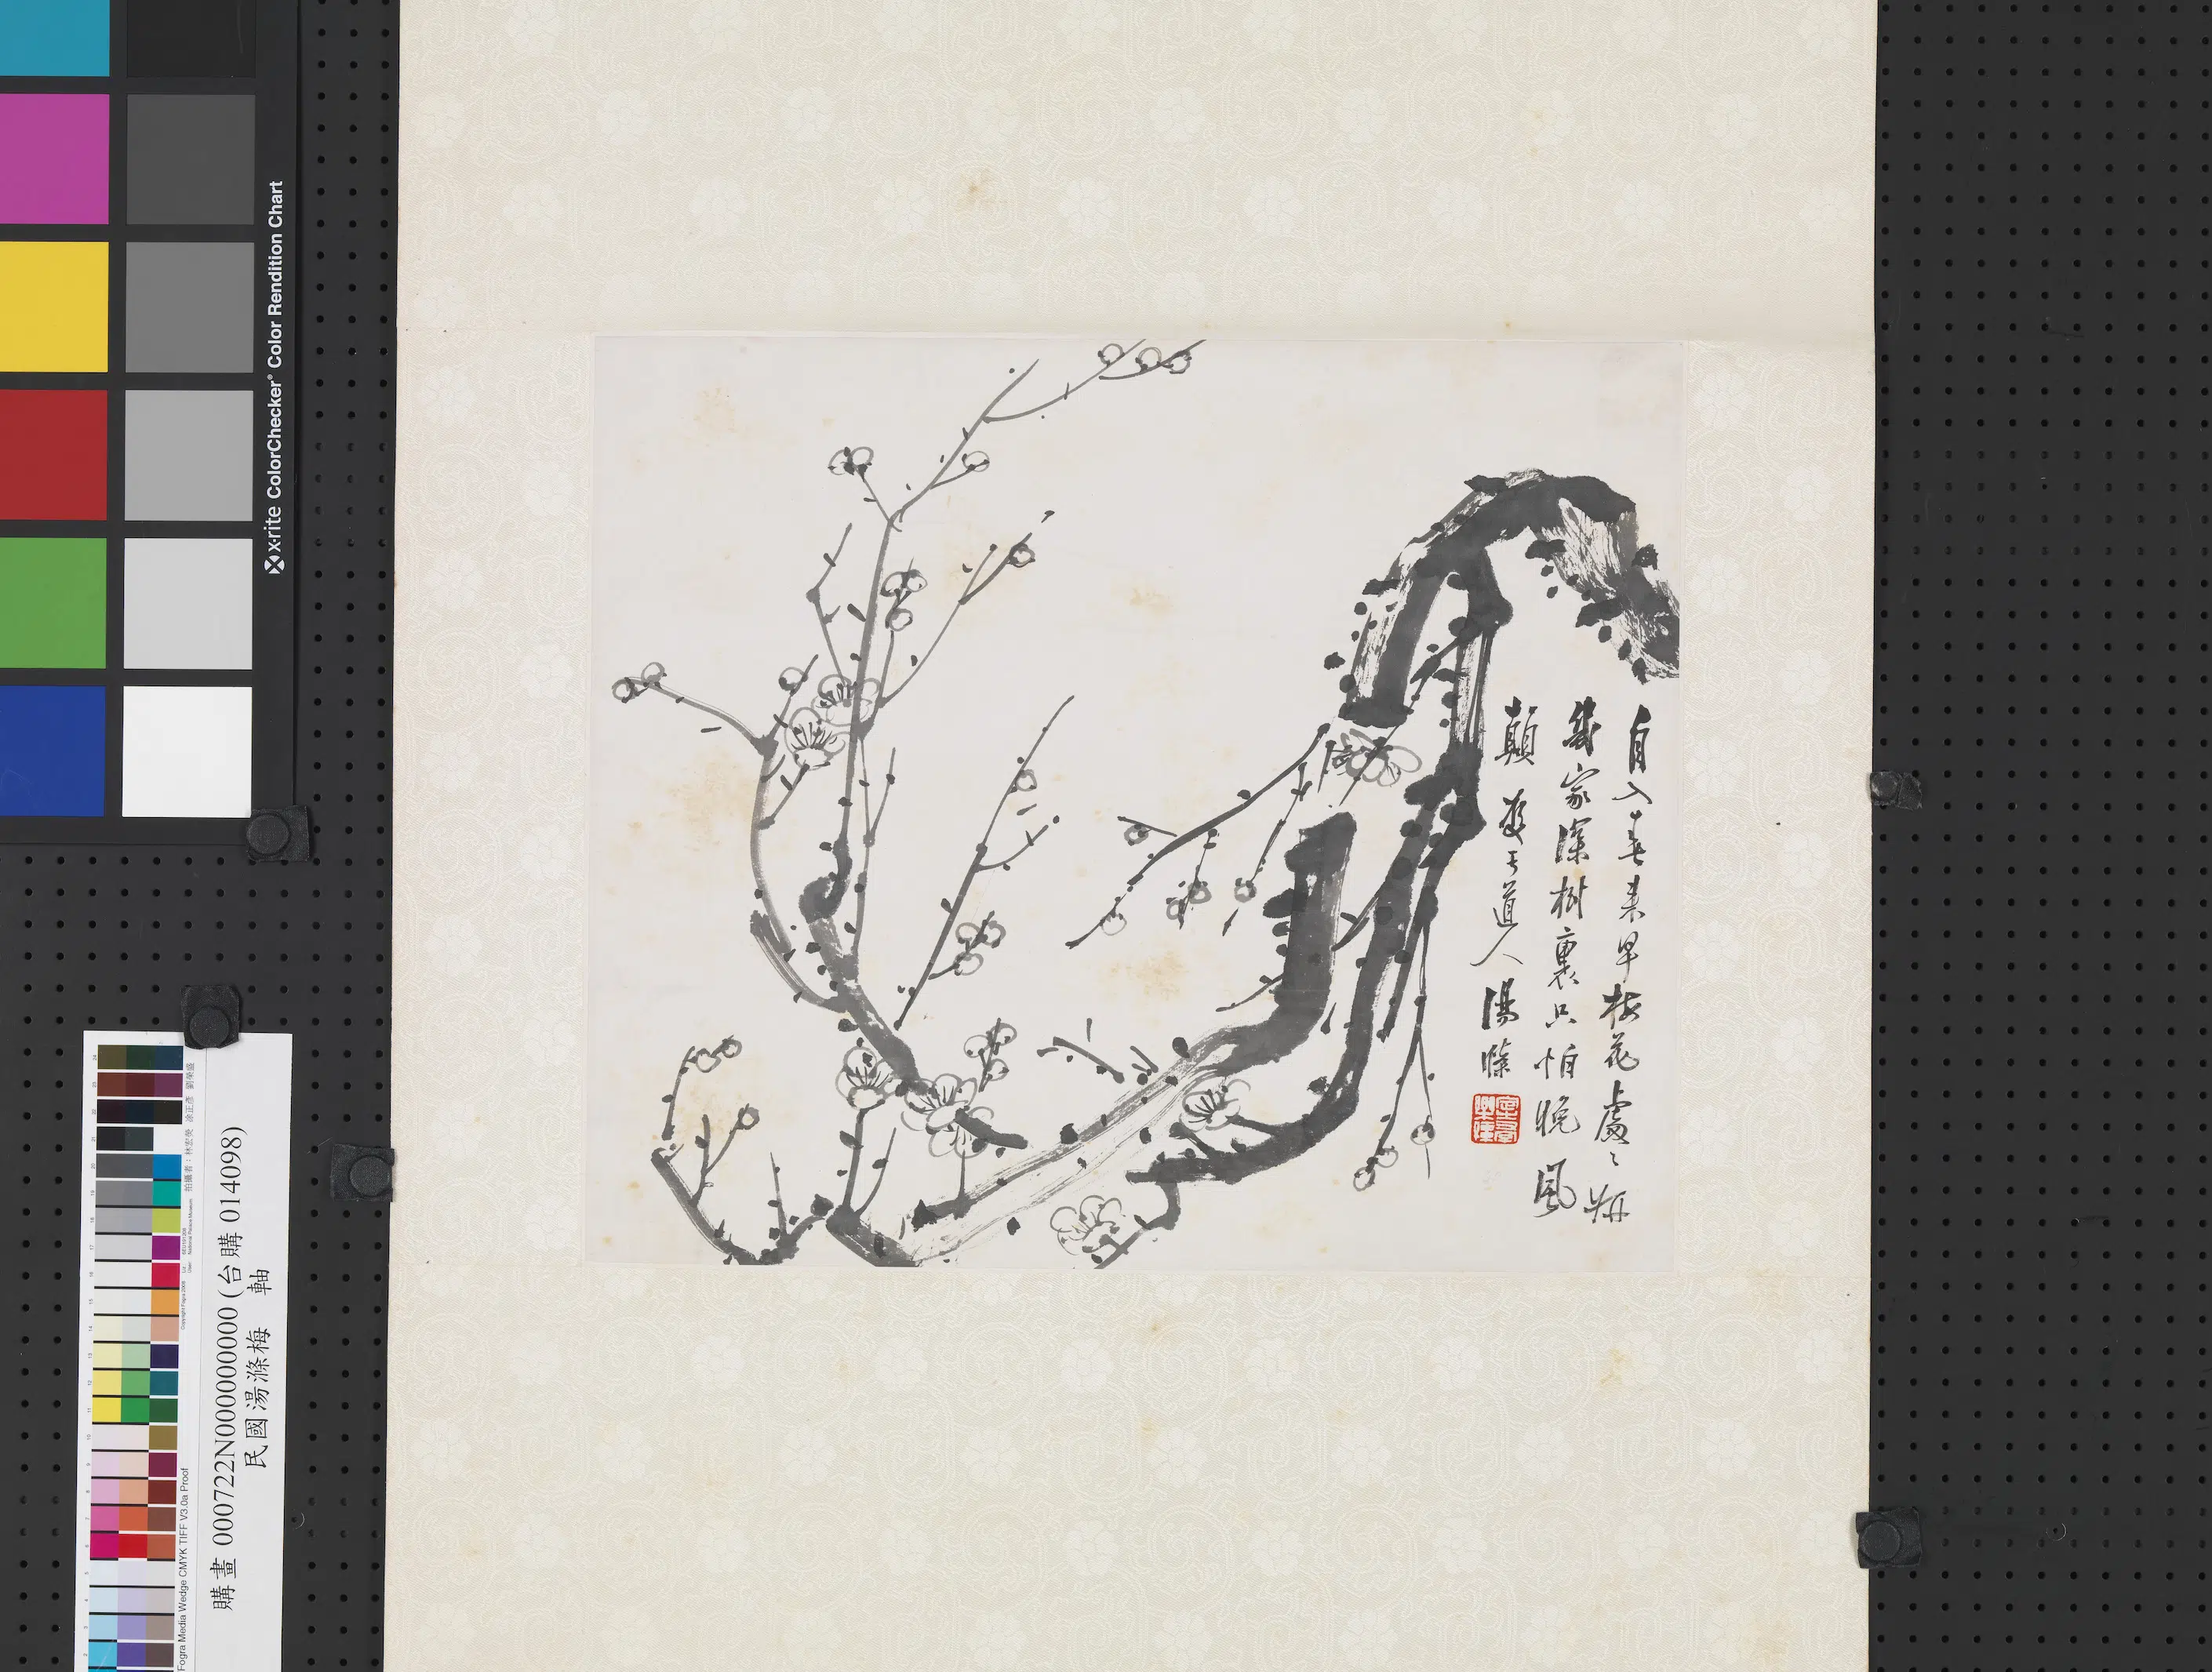 自入春來早梅花處〻妍
幾家深樹裏只怕晚風
顛 雙于道人 湯滌
x-rite ColorChecker® Color Rendition Chart
購畫 000722N000000000 (台購 014098)
民國湯滌梅 軸
Fogra Media Wedge CMYK TIFF V3.0a Proof